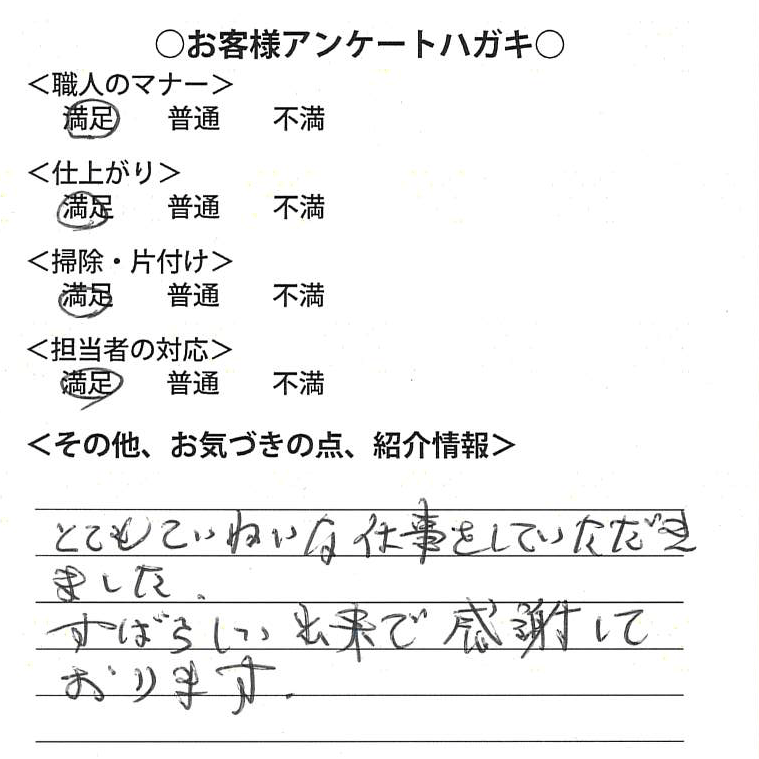 ○お客様アンケートハガキ○
＜職人のマナー＞
満足 普通 不満
＜仕上がり＞
満足 普通 不満
＜掃除・片付け＞
満足 普通 不満
＜担当者の対応＞
満足 普通 不満
＜その他、お気づきの点、紹介情報＞
とてもていねいな仕事をしていただき
ました。
すばらしい出来で感謝して
おります。